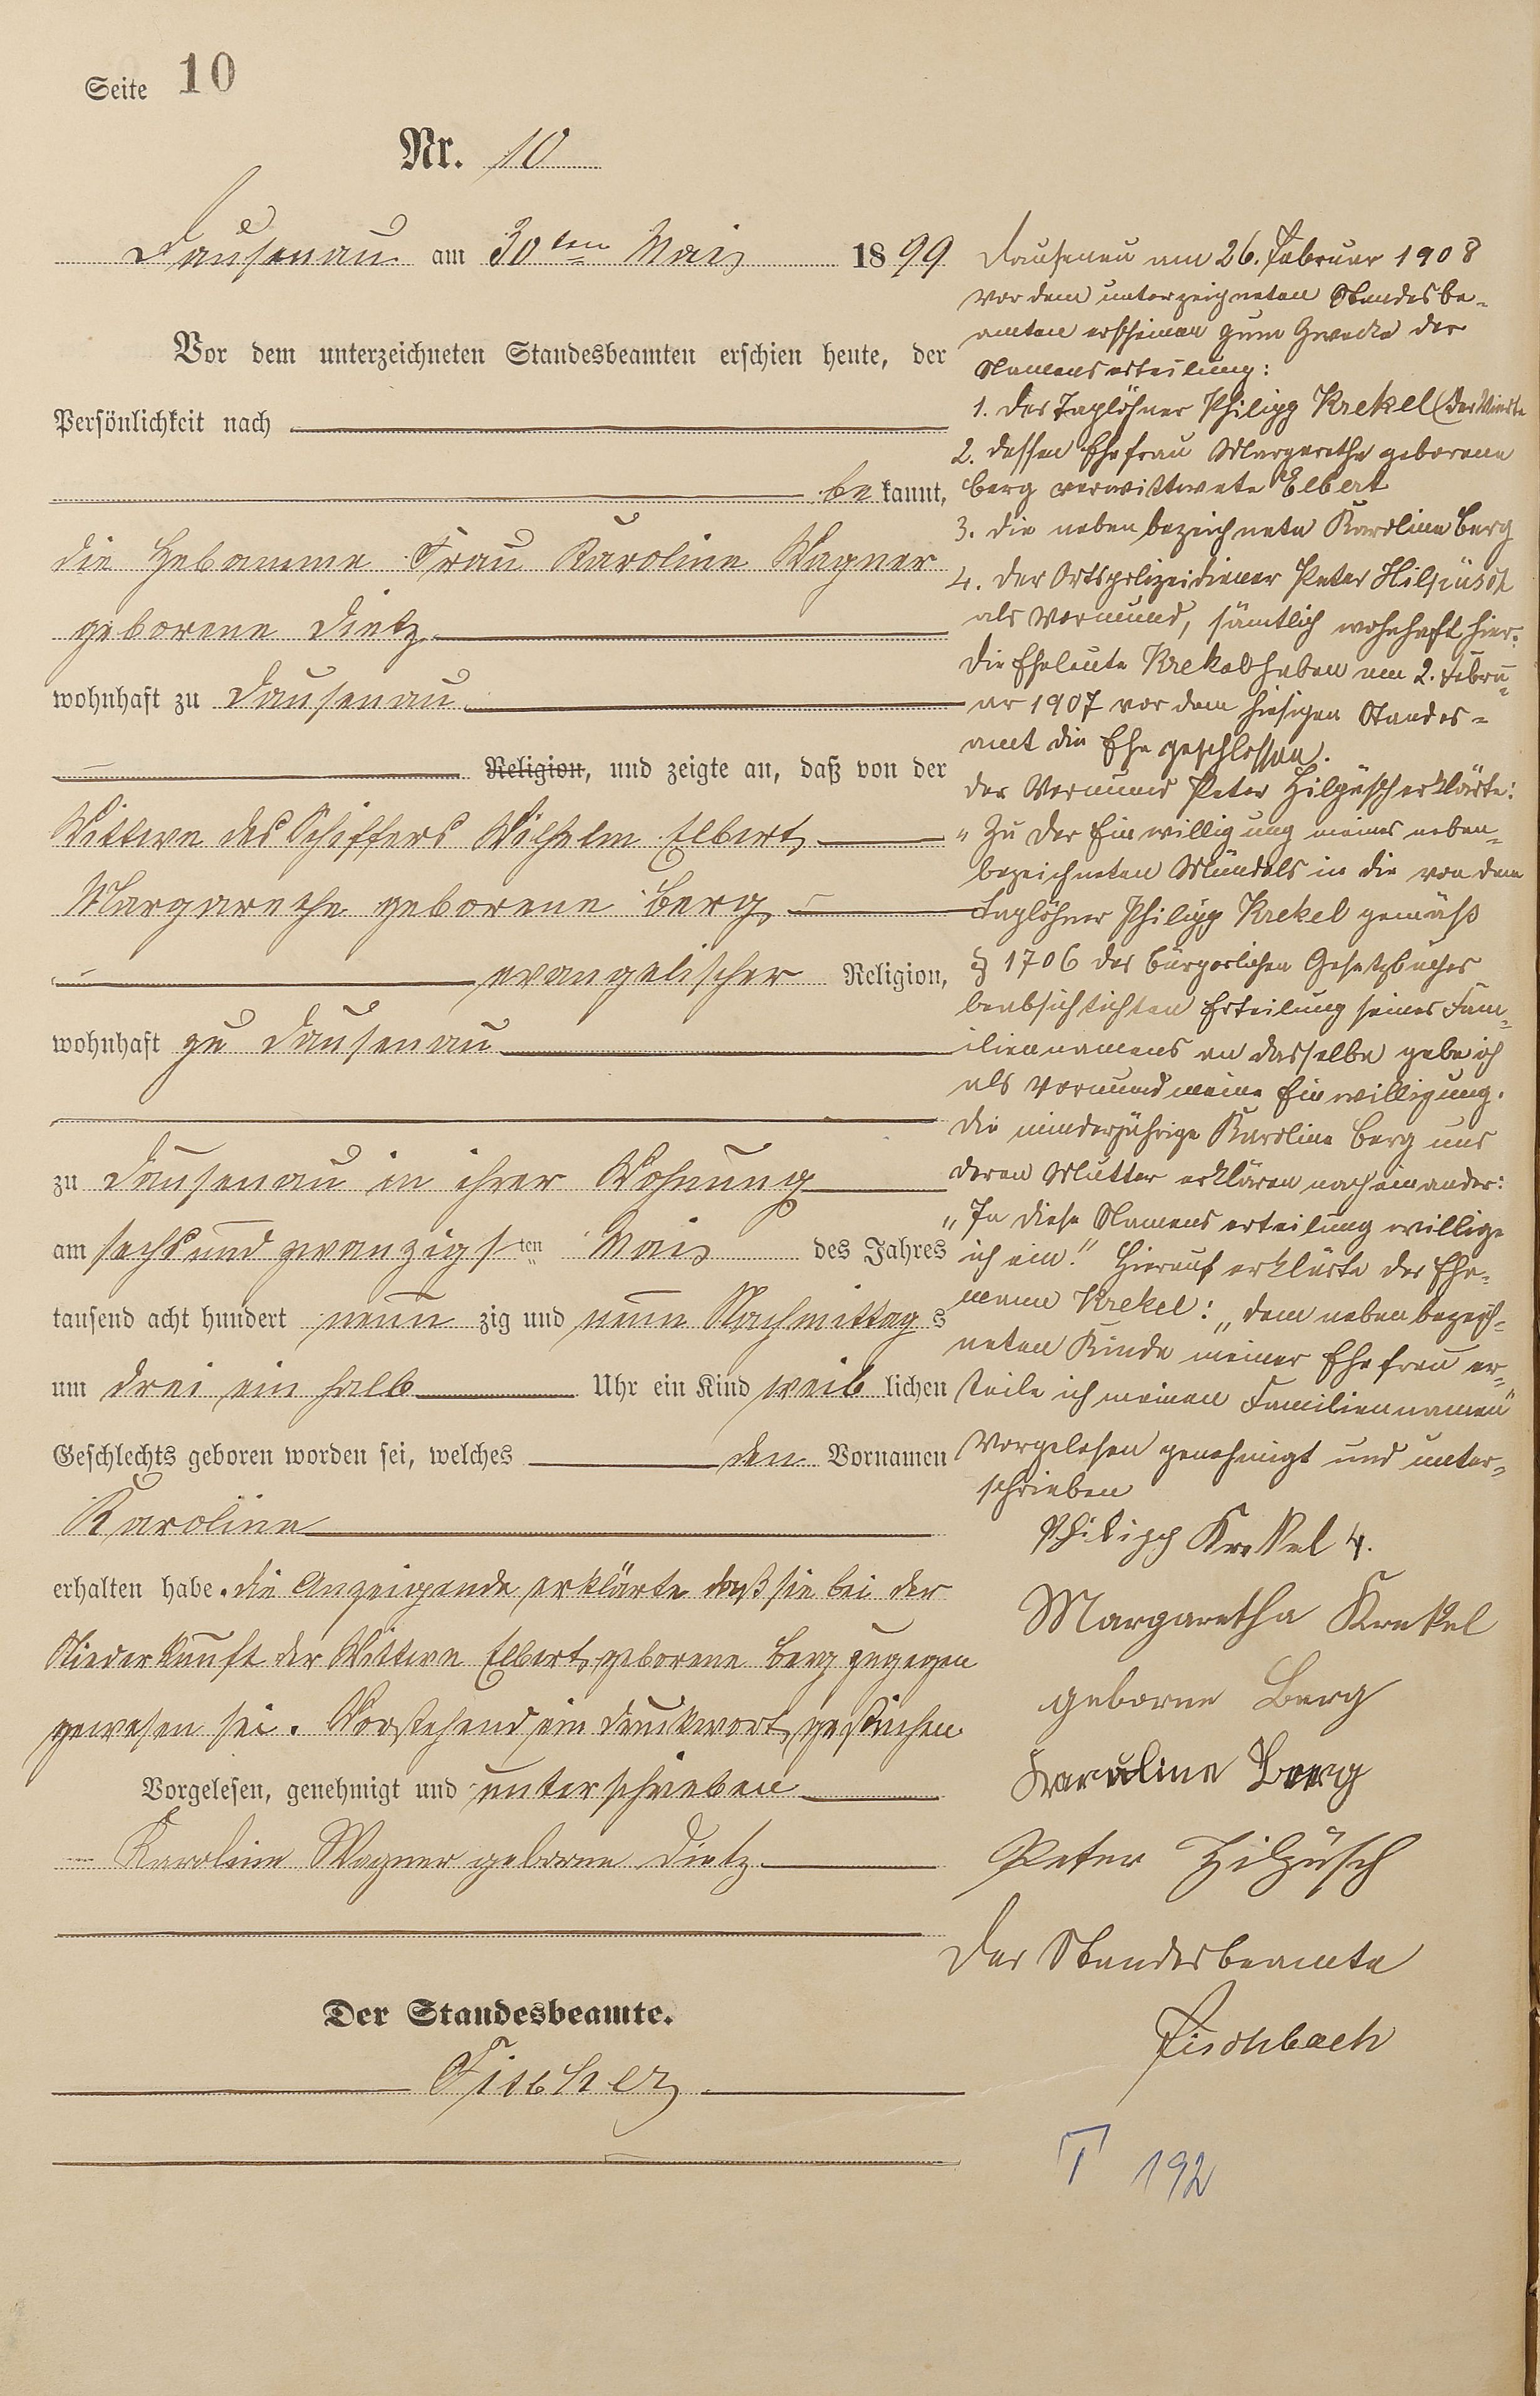 Seite 10
Nr. 10
Dausenau am 30ten Mai 1899
Vor dem unterzeichneten Standesbeamten erschien heute, der
Persönlichkeit nach
be kannt,
die Hebamme Frau Karoline Wagner
geborene Dietz
wohnhaft zu Dausenau
Religion, und zeigte an, daß von der
Wittwe des Schiffers Wilhelm Elbert,
Margarethe geborene Berg,
evangelischer Religion,
wohnhaft zu Dausenau
zu Dausenau in ihrer Wohnung
am sechs und zwanzigsten Mai des Jahres
tausend acht hundert neun zig und neun Nachmittag s
um drei ein halb Uhr ein Kind weib lichen
Geschlechts geboren worden sei, welches den Vornamen
Karoline
erhalten habe. die Anzeigende erklärte daß sie bei der
Niederkunft der Wittwe Elbert, geborene Berg zugegen
gewesen sei. Vorstehend ein Druckwort gestrichen.
Vorgelesen, genehmigt und unterschrieben
Karoline Wagner geborne Dietz
Der Standesbeamte.
Fischer
Dausenau am 26. Februar 1908
vor dem unterzeichneten Standesbe-
amten erschienen zum Zwecke der
Namenserteilung:
1. der Taglöhner Philipp Krekel (der Vierte
2. dessen Ehefrau Margarethe geborene
Berg verwittwete Elbert
3. die nebenbezeichnete Karoline Berg
4. der Ortspolizeidiener Peter Hilpüsch
als Vormund, sämtlich wohnhaft hier.
Die Eheleute Krekel haben am 2. Febru-
ar 1907 vor dem hiesigen Standes-
amt die Ehe geschlossen.
Der Vormund Peter Hilpüsch erklärte:
„Zu der Einwilligung meines neben-
bezeichneten Mündels in die von dem
Taglöhner Philipp Krekel gemäß
§ 1706 des Bürgerlichen Gesetzbuches
beabsichtichten Erteilung seines Fam-
iliennamens an dasselbe gebe ich
als Vormund meine Einwilligung.
Die minderjährige Karoline Berg und
deren Mutter erklären nacheinander:
„In diese Namenserteilung willige
ich ein." Hierauf erklärte der Ehe-
mann Krekel: „dem nebenbezeich-
neten Kinde meiner Ehefrau er-
teile ich meinen Familiennamen"
Vorgelesen genehmigt und unter-
schrieben
Philipp Krekel 4.
Margaretha Krekel
geborne Berg
Karoline Berg
Peter Hilpüsch
Der Standesbeamte
Fischbach
T 192